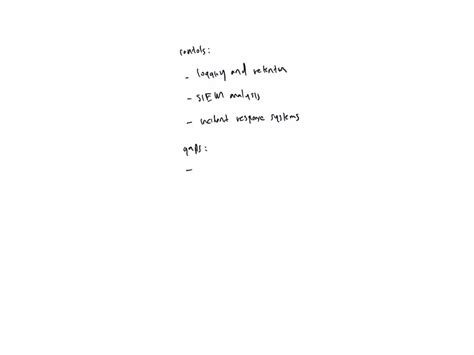 controls:
- logging and retention
- SIEM analysis
- incident response systems
gaps:
-